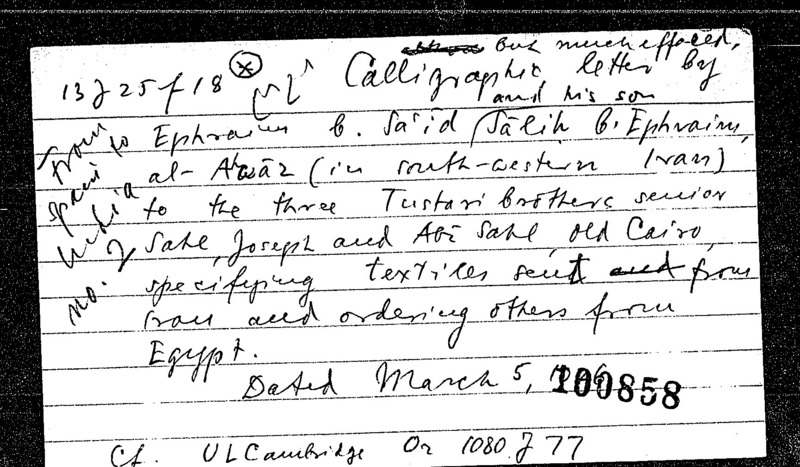 but much effaced,
13 J 25 f 18 Calligraphic letter by
and his son
Ephraim b. Sa'īd Ṣāliḥ b. Ephraim,
al-Ahwāz (in south-western Iran)
to the three Tustari brothers senior
Sahl, Joseph and Abī Sahl, Old Cairo,
specifying textiles sent from
Iran and ordering others from
Egypt.
Dated March 5,
100858
Cf. UL Cambridge Or 1080 J 77
from
Spain to
India
no. 2